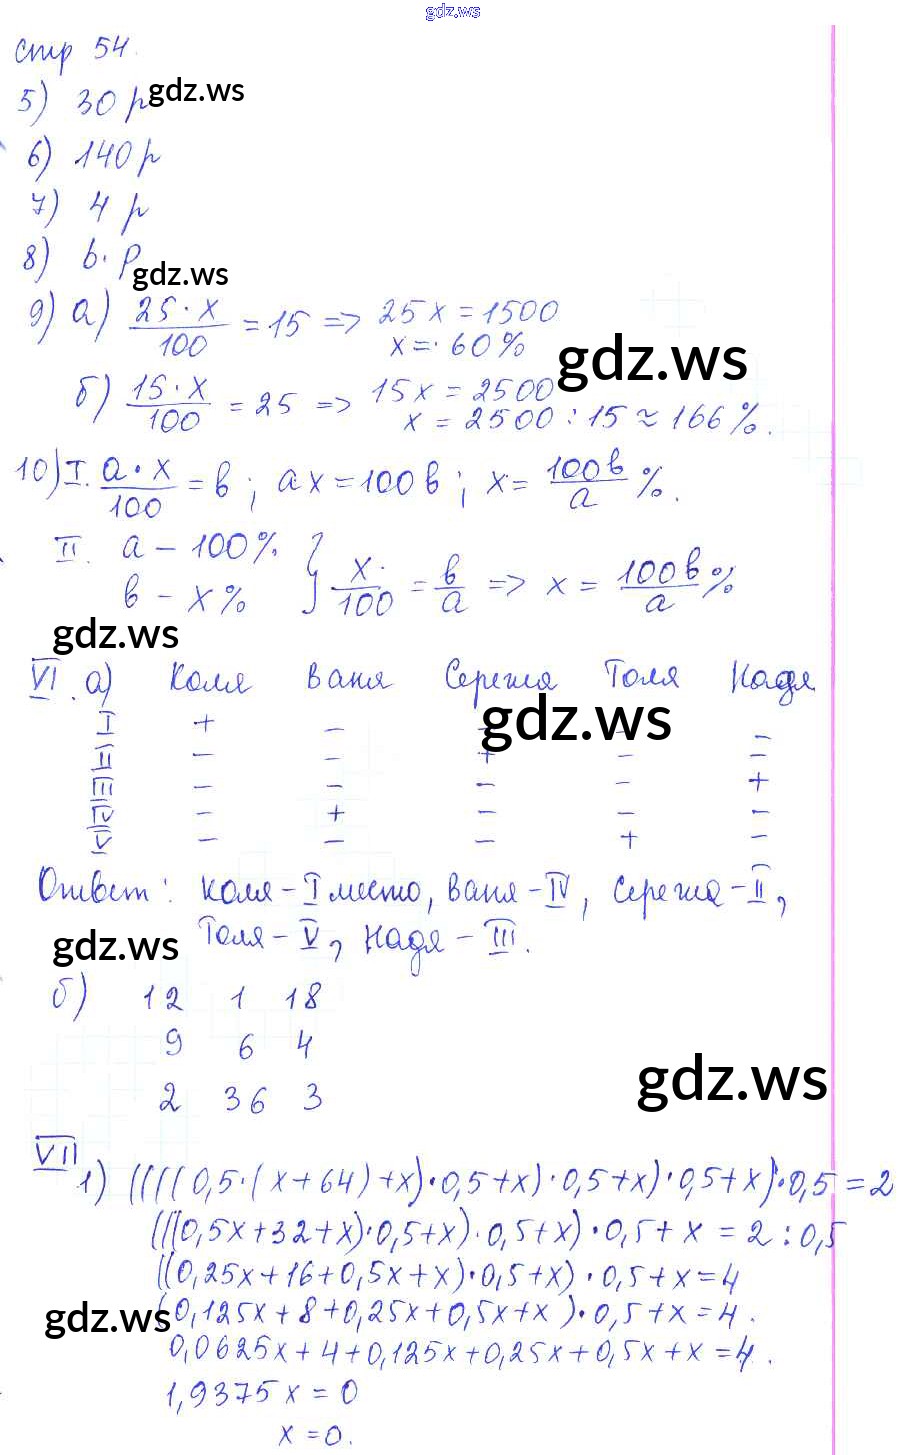 gdz.ws
стр 54.
5) 30 р gdz.ws
6) 140 р
7) 4 р
8) b · р gdz.ws
9) а) 25 · x / 100 = 15 => 25x = 1500
x = 60%
gdz.ws
б) 15 · x / 100 = 25 => 15x = 2500
x = 2500 : 15 ≈ 166%.
10) I. a · x / 100 = в ; ax = 100в ; x = 100в / a %.
II. a – 100%
в – x% } x / 100 = в / a => x = 100в / a %
gdz.ws
VI. а) Коля Ваня Сережа Толя Надя
gdz.ws
I + – – – –
II – – + – –
III – – – – +
IV – + – – –
V – – – + –
Ответ: Коля – I место, Ваня – IV, Сережа – II,
gdz.ws Толя – V, Надя – III.
б) 12 1 18
9 6 4
gdz.ws
2 36 3
VII
1) (((((0,5·(x+64)+x)·0,5+x)·0,5+x)·0,5+x)·0,5=2
(((0,5x+32+x)·0,5+x)·0,5+x)·0,5+x=2:0,5
((0,25x+16+0,5x+x)·0,5+x)·0,5+x=4
gdz.ws (0,125x+8+0,25x+0,5x+x)·0,5+x=4.
gdz.ws 0,0625x+4+0,125x+0,25x+0,5x+x=4.
1,9375x=0
x=0.